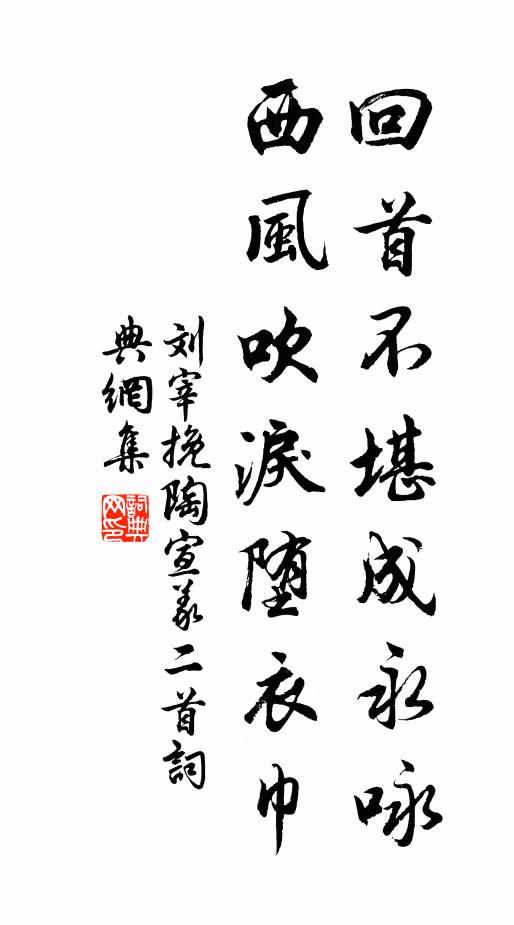 回首不堪成永咏
西風吹淚堕衣巾
刘宰挽陶宣義二首詞
典網集
詞典网印